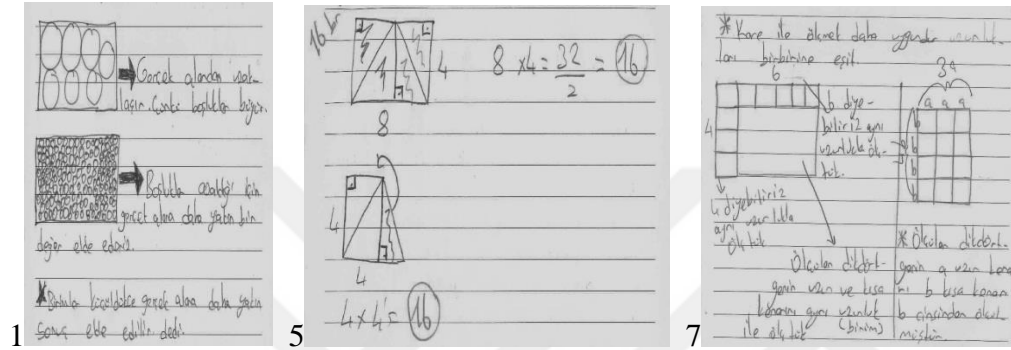 Gerçek alandan uzak-
laşırız. Çünkü boşluklar büyür.
Boşluklar azaldığı için
gerçek alana daha yakın bir
değer elde ederiz.
* Birimler küçüldükçe gerçek alana daha yakın
sonuç elde edilir dedi.
1
16 br
4
8 x4 = 32/2 = 16
8
4
4
4x4 = 16
5
* Kare ile ölçmek daha uygundur uzunluk-
ları birbirine eşit.
6
4
6 diye-
biliriz aynı
uzunlukla ölç-
tük.
4 diyebiliriz
aynı uzunlukla
ölçtük
Ölçülen dikdört-
genin uzun ve kısa
kenarını aynı uzunluk
ile ölçtük (birim)
3a
a a a
b
b
b
* Ölçülen dikdört-
genin a uzun kena-
rı b kısa kenarı
b cinsinden ölçül-
müştür.
7